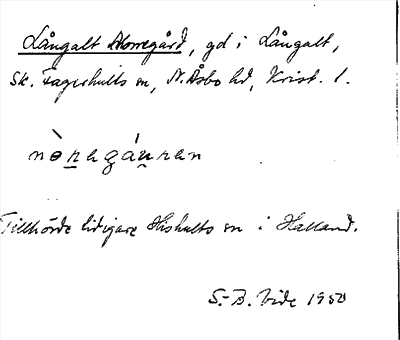 Långalt Norregård, gd i Långalt,
Sk. Fagerhults sn, N. Åsbo hd, Krist. l.
nòrregáu̯ren
Tillhörde tidigare Hishults sn i Halland.
S.-B. Vide 1950